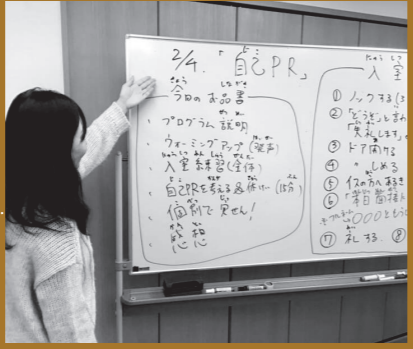 2/4. 「自己PR」
今日のお品書
・プログラム説明
・ウォーミングアップ(発声)
・入室練習(全体)
・自己PRを考える&休けい(15分)
・個別で実せん!
・感想
入室
① ノックする(3
② 「どうぞ」と言わ
「失礼します」
③ ドア開ける
④ 〃 しめる
⑤ イスの方へあるき
⑥
⑦ 礼する。⑧